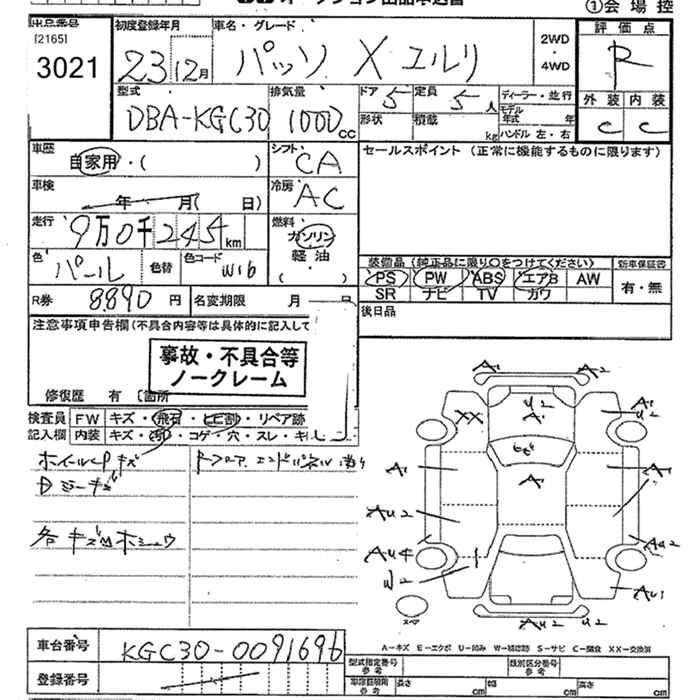 ①会場控
出品番号 初度登録年月 車名・グレード 評価点
[2165]
3021 23 12月 パッソ X ユルリ 2WD・4WD R
型式 排気量 ドア 定員 ディーラー・並行 外装 内装
DBA-KGC30 1000cc 5 5人 モデル年式 年 C C
形状 積載 kg ハンドル 左・右
車歴 シフト セールスポイント (正常に機能するものに限ります)
自家用・( ) CA
車検 冷房
年 月( 日) AC
走行 燃料
9万0千245km ガソリン
軽油
( )
色 色替 色コード 装備品 (純正品に限り○をつけてください) 新車保証書
パール W16 PS PW ABS エアB AW 有・無
SR ナビ TV カワ
R券 8890円 名変期限 月 日 後日品
注意事項申告欄 (不具合内容等は具体的に記入して
事故・不具合等
ノークレーム
修復歴 有 [箇所
検査員 FW キズ・飛石・ヒビ割・リペア跡
記入欄 内装 キズ・汚れ・コゲ・穴・スレ・キ
ホイールCPキズ
各キズ凹ホシュウ
A1 A2
U2 A1 XX A1 U2
A1 A1 A1
AU2 AU2
AU4 W2 AU1
AU2 U2
スペア
A-キズ E-エクボ U-凹み W-補修跡 S-サビ C-腐食 XX-交換済
車台番号 KGC30-0091696 型式指定番号 参考 類別区分番号 参考
登録番号 車体寸法 参考 長さ cm 幅 cm 高さ cm